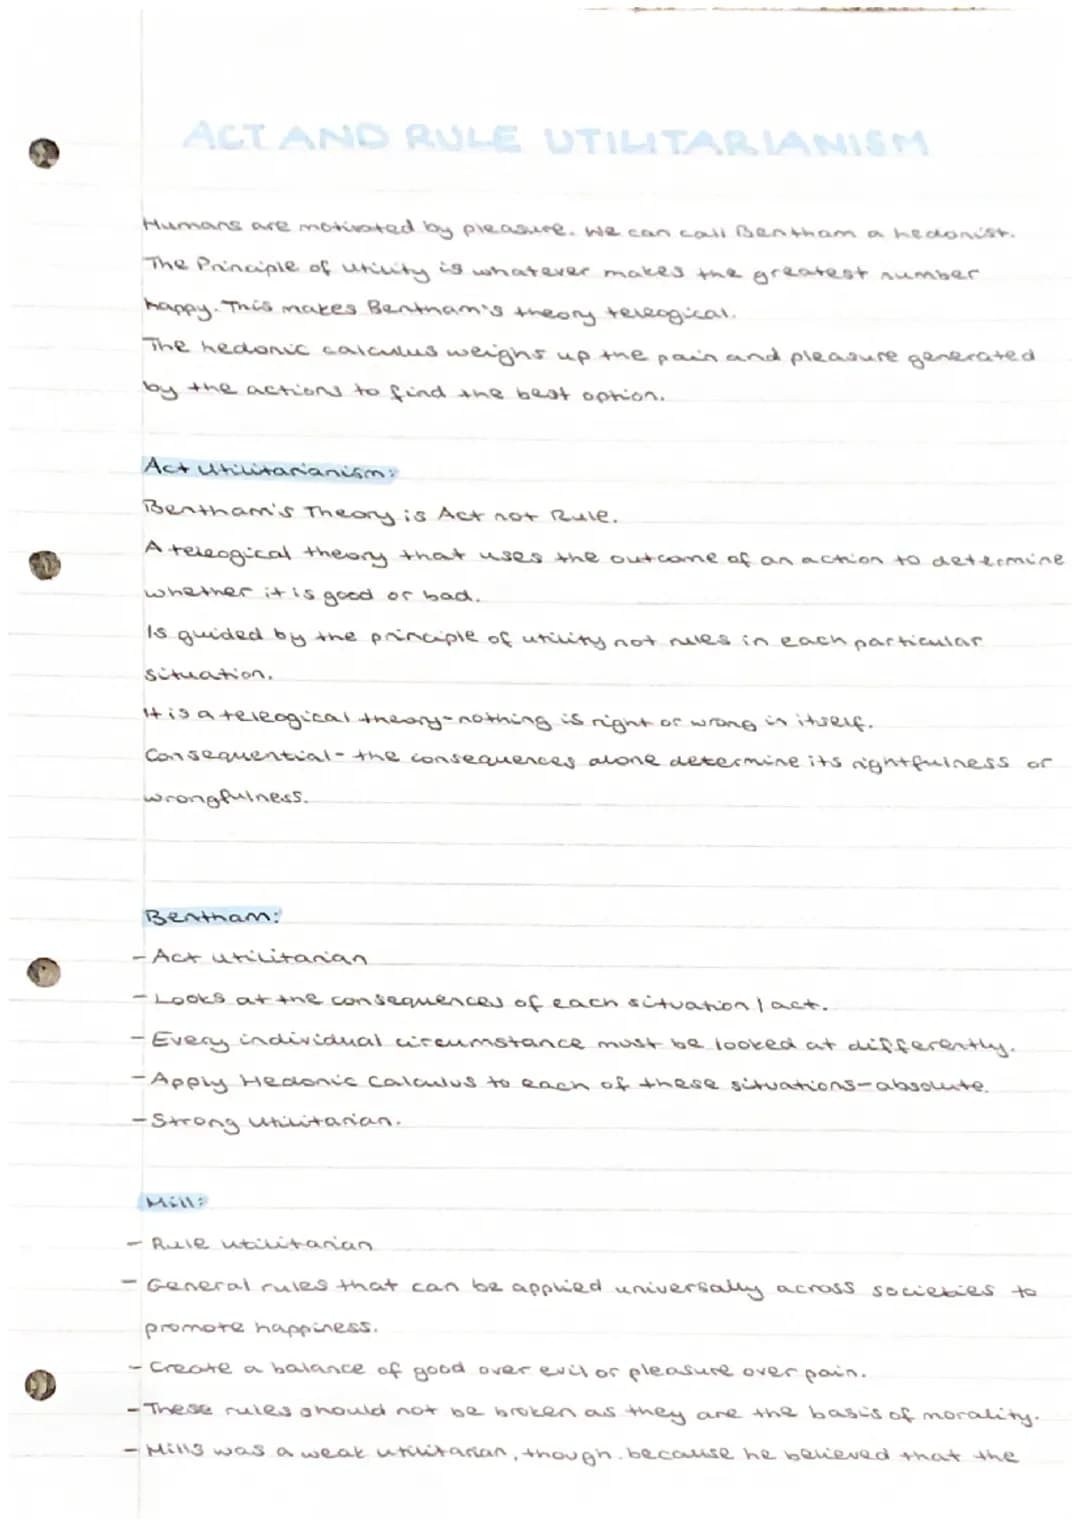 ACT AND RULE UTILITARIANISM
Humans are motivated by pleasure. We can call Bentham a hedonist.
The Principle of Utility is whatever makes the greatest number
happy. This makes Bentham's theory teleogical.
The hedonic calculus weighs up the pain and pleasure generated
by the actions to find the best option.
Act Utilitarianism:
Bentham's Theory is Act not Rule.
A teleogical theory that uses the outcome of an action to determine
whether it is good or bad.
Is guided by the principle of utility not rules in each particular
situation.
It is a teleogical theory - nothing is right or wrong in itself.
Consequential - the consequences alone determine its rightfulness or
wrongfulness.
Bentham:
- Act utilitarian
- Looks at the consequences of each situation / act.
- Every individual circumstance must be looked at differently.
- Apply Hedonic Calculus to each of these situations - absolute.
- Strong Utilitarian.
Mill:
- Rule utilitarian
- General rules that can be applied universally across societies to
promote happiness.
- Create a balance of good over evil or pleasure over pain.
- These rules should not be broken as they are the basis of morality.
- Mills was a weak utilitarian, though. because he believed that the